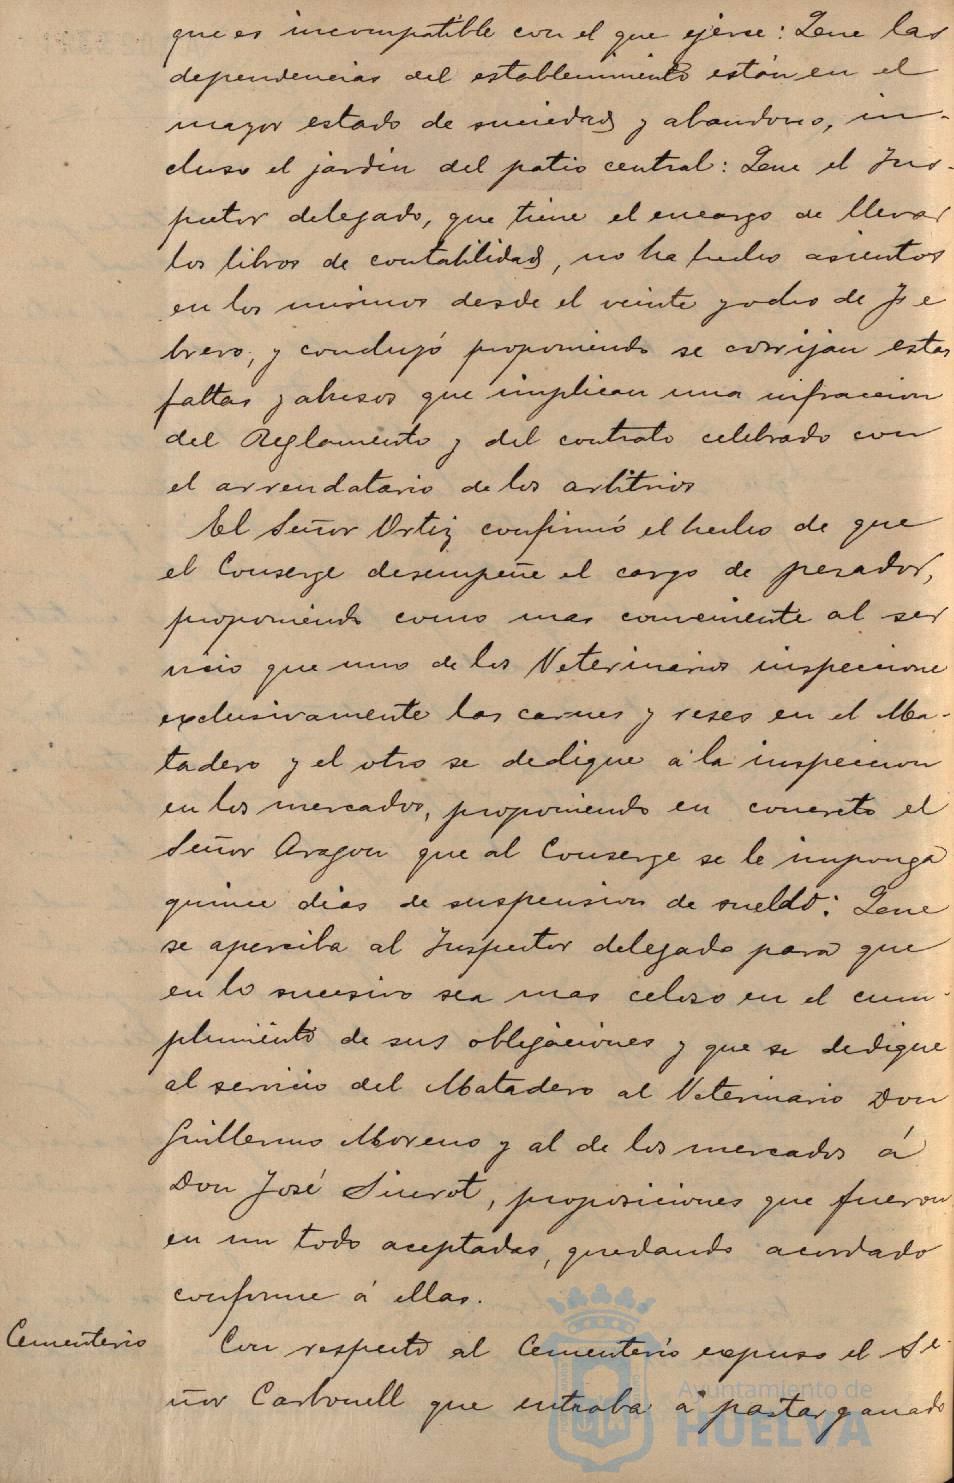 que es incompatible con el que ejerce: Que las
dependencias del establecimiento están en el
mayor estado de suciedad y abandono, in-
cluso el jardin del patio central: Que el Ins-
pector delegado, que tiene el encargo de llevar
los libros de contabilidad, no ha hecho asientos
en los mismos desde el veinte y ocho de Fe
brero, y concluyó proponiendo se corrijan estas
faltas y abusos que implican una infraccion
del Reglamento y del contrato celebrado con
el arrendatario de los arbitrios
El Señor Ortiz confirmó el hecho de que
el Conserge desempeñe el cargo de pesador,
proponiendo como mas conveniente al ser
vicio que uno de los Veterinarios inspeccione
exclusivamente las carnes y reses en el Ma-
tadero y el otro se dedique á la inspeccion
en los mercados, proponiendo en concreto el
Señor Aragon que al Conserge se le imponga
quince dias de suspension de sueldo: Que
se aperciba al Inspector delegado para que
en lo sucesivo sea mas celoso en el cum-
plimiento de sus obligaciones y que se dedique
al servicio del Matadero al Veterinario Don
Guillermo Moreno y al de los mercados á
Don José Siurot, proposiciones que fueron
en un todo aceptadas, quedando acordado
conforme á ellas.
Cementerio Con respecto al Cementerio expuso el Se-
ñor Carbonell que entraba á pastar ganado
Ayuntamiento de
HUELVA